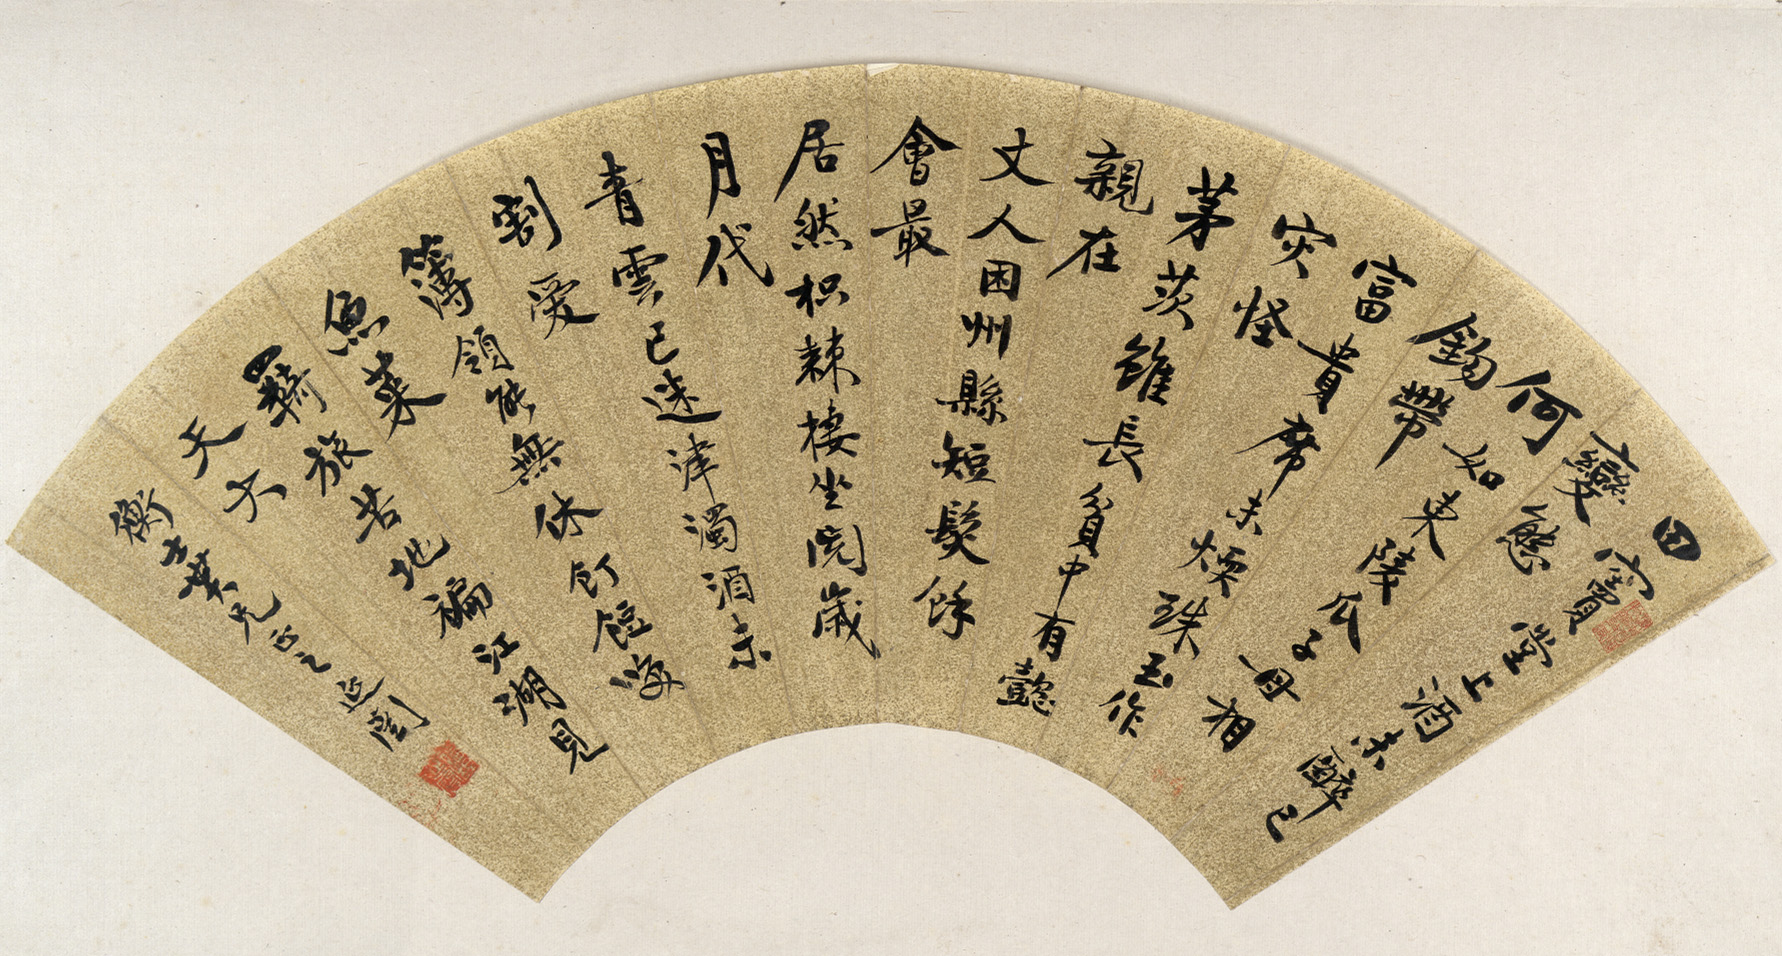 田竇堂上酒未醉已
變態
何如東陵瓜子母相
鉤帶
富貴席未煖珠玉作
灾怪
茅茨雖長貧中有懿
親在
丈人困州縣短髮餘
會最
居然枳棘棲坐閱歲
月代
青雲已迷津濁酒未
割愛
簿領能無休飣餖海
魚菜
羈旅苦地褊江湖見
天大
衡士英兄正之